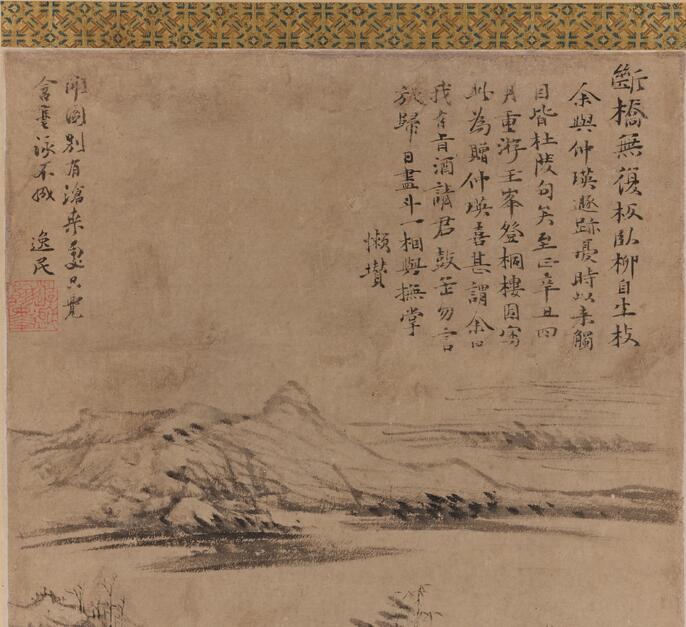 斷橋無復板臥柳自生枝
余與仲瑛遯跡憂時以来觸
目皆杜陵句矣至正辛丑四
月重游玉峯登桐樓因寫
此為贈仲瑛喜甚謂余曰
我有旨酒請君鼓缶勿言
歸日盡斗一相與撫掌
懶瓚
圖別有滄桒只覺
含毫詠不成 逸民